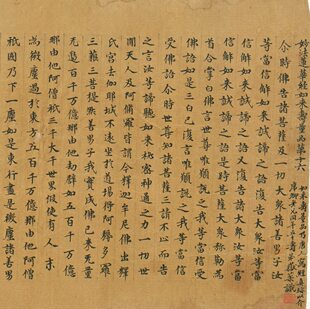 妙法蓮華經如來壽量品第十六
尒時佛告諸菩薩及一切大衆諸善男子汝
等當信解如來誠諦之語復告大衆汝等當
信解如來誠諦之語又復告諸大衆汝等當
信解如來誠諦之語是時菩薩大衆弥勒為
首合掌白佛言世尊唯願說之我等當信受
佛語如是三白已復言唯願說之我等當信
受佛語尒時世尊知諸菩薩三請不止而告
之言汝等諦聽如來祕密神通之力一切世
間天人及阿脩羅皆謂今釋迦牟尼佛出釋
氏宮去伽耶城不遠坐於道場得阿耨多羅
三藐三菩提然善男子我實成佛已來无量
无邊百千万億那由他劫譬如五百千万億
那由他阿僧祇三千大千世界假使有人末
為微塵過於東方五百千万億那由他阿僧
祇國乃下一塵如是東行盡是微塵諸善男